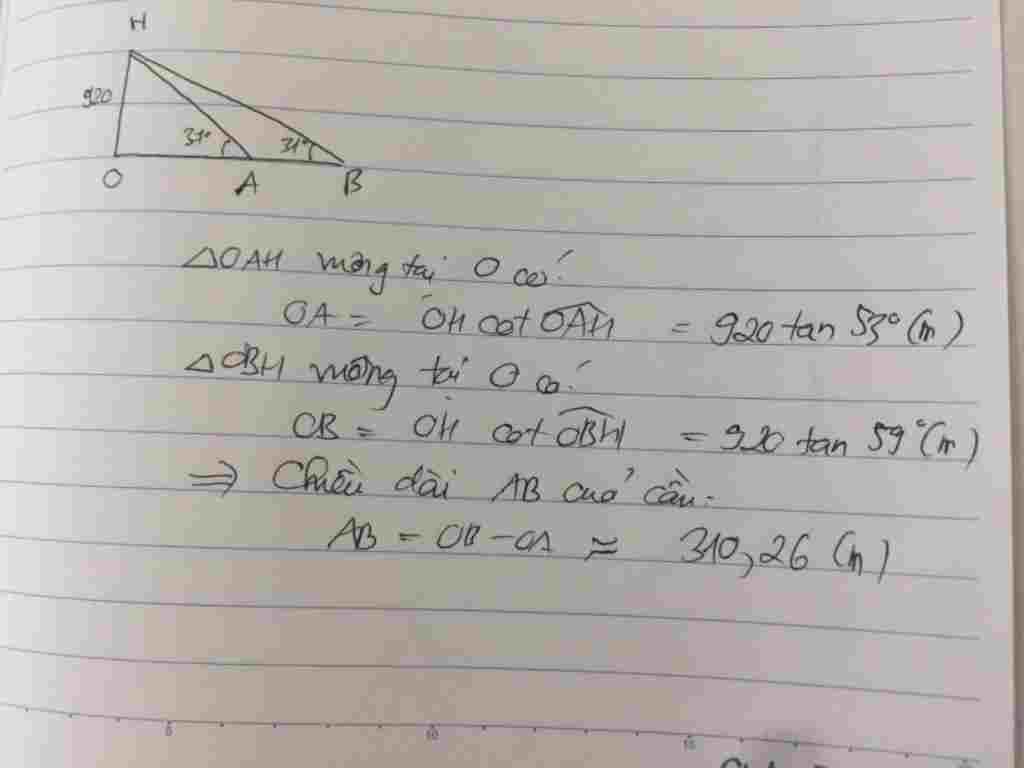 H
920
37° 31°
O A B
△OAH vuông tại O có:
OA = OH cot OAH = 920 tan 53° (m)
△OBH vuông tại O có:
OB = OH cot OBH = 920 tan 59° (m)
⇒ Chiều dài AB của cầu:
AB = OB - OA ≈ 310,26 (m)
5 10 15